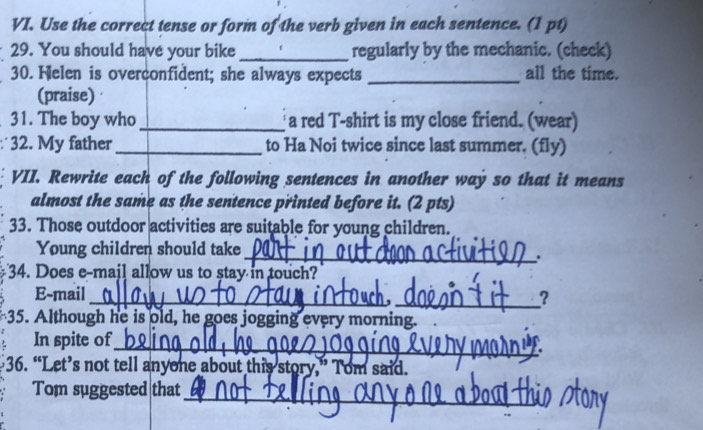 VI. Use the correct tense or form of the verb given in each sentence. (1 pt)
29. You should have your bike ____________ regularly by the mechanic. (check)
30. Helen is overconfident; she always expects ________________ all the time.
(praise)
31. The boy who ________________ a red T-shirt is my close friend. (wear)
32. My father ________________ to Ha Noi twice since last summer. (fly)
VII. Rewrite each of the following sentences in another way so that it means
almost the same as the sentence printed before it. (2 pts)
33. Those outdoor activities are suitable for young children.
Young children should take part in out doon activities.
34. Does e-mail allow us to stay in touch?
E-mail allow us to stay in touch, doesn't it?
35. Although he is old, he goes jogging every morning.
In spite of being old, he goes jogging every morning.
36. “Let’s not tell anyone about this story,” Tom said.
Tom suggested that not telling anyone about this story